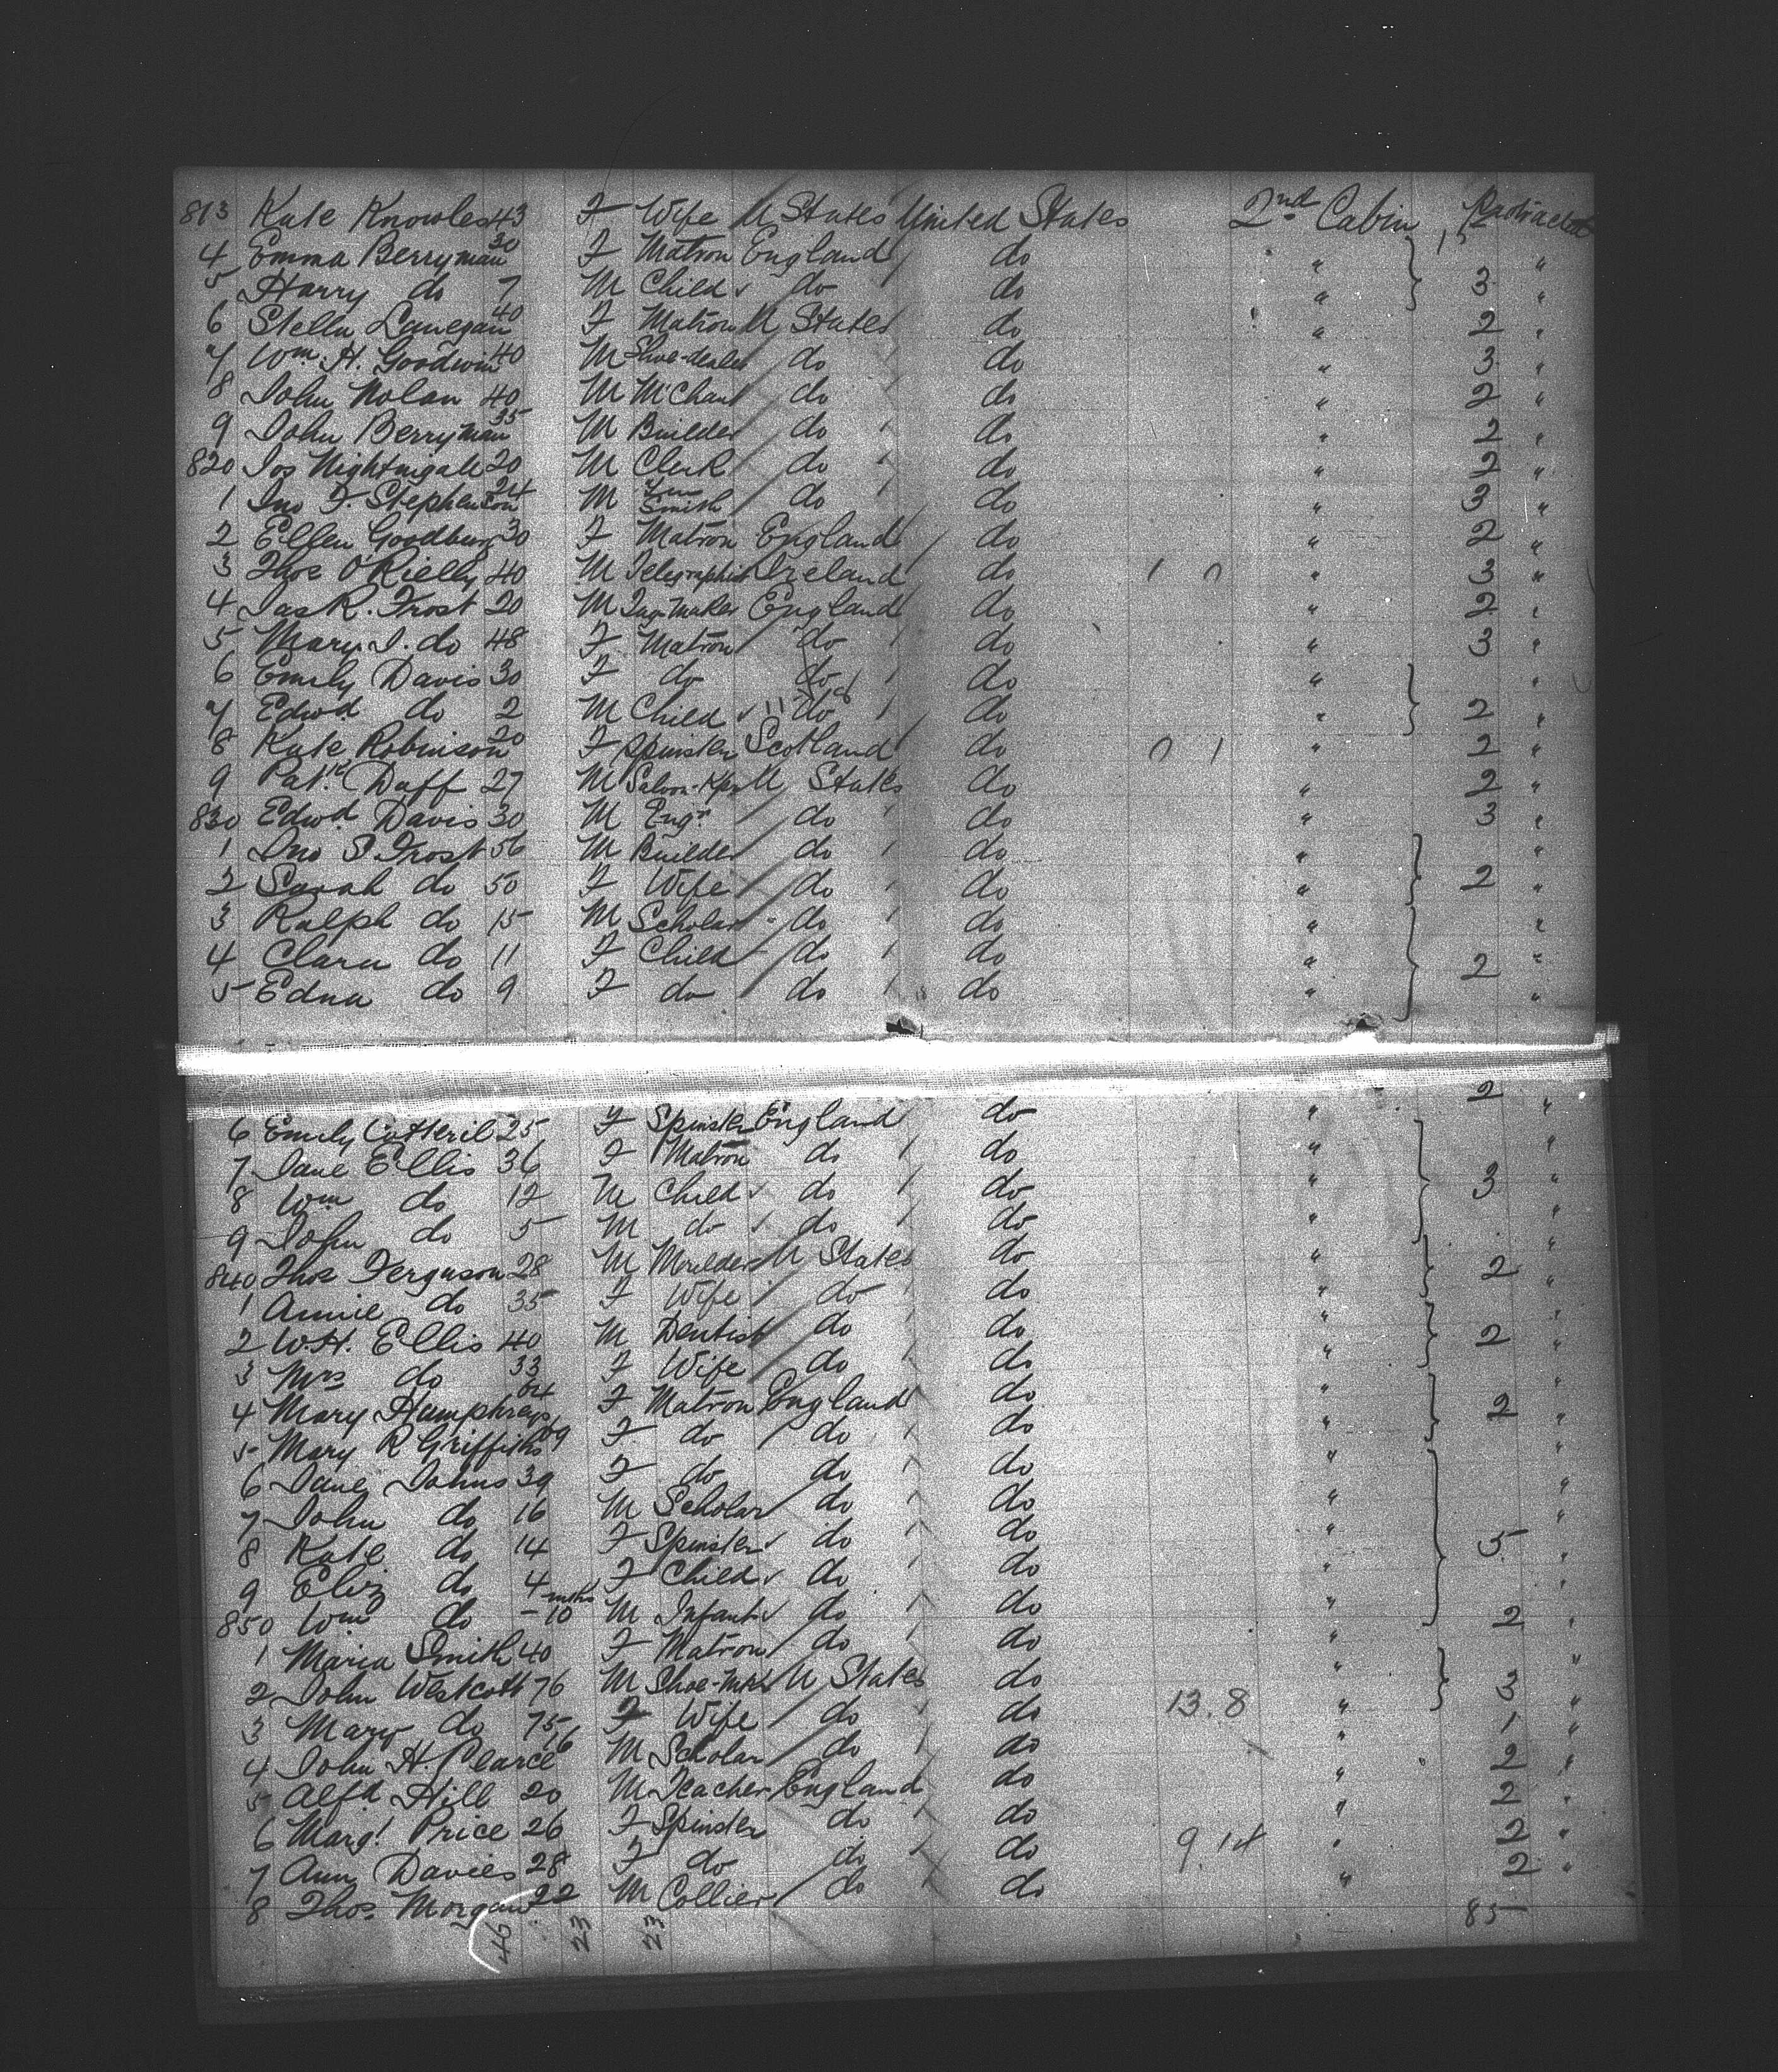 813 Kate Knowles 43 F Wife U States United States 2nd Cabin
4 Emma Berryman 30 F Matron England do " 1 "
5 Harry do 7 M Child do do " 3 "
6 Stella Lanegan 40 F Matron U States do " 2 "
7 Wm. H. Goodwin 40 M Shoe-dealer do do " 3 "
8 John Nolan 40 M Mchant do do " 2 "
9 John Berryman 35 M Builder do do " 2 "
820 Jos Nightngale 20 M Clerk do do " 2 "
1 Jno F. Stephenson 24 M Smith do do " 3 "
2 Ellen Goodburg 30 F Matron England do " 2 "
3 Thos O'Rielly 40 M Telegraphist Ireland do 1 0 " 3 "
4 Jas R. Frost 20 M England do " 2 "
5 Mary J. do 48 F Matron do do " 3 "
6 Emily Davis 30 F do do do " "
7 Edwd do 2 M Child do do " 2 "
8 Kate Robinson 20 F Spinster Scotland do 0 1 " 2 "
9 Patk Duff 27 M Saloon-Kpr U States do " 2 "
830 Edwd Davis 30 M Engr do do " 3 "
1 Jno S Frost 56 M Builder do do " "
2 Sarah do 50 F Wife do do " 2 "
3 Ralph do 15 M Scholar do do " "
4 Clara do 11 F Child do do " 2 "
5 Edna do 9 F do do do " "
6 Emily Cotteril 25 F Spinster England do " 2 "
7 Jane Ellis 36 F Matron do do " "
8 Wm do 12 M Child do do " 3 "
9 John do 5 M do do do " "
840 Thos Ferguson 28 M Moulder U States do " 2 "
1 Annie do 35 F Wife do do " "
2 W.H. Ellis 40 M Dentist do do " 2 "
3 Mrs do 33 F Wife do do " "
4 Mary Humphreys 64 F Matron England do " 2 "
5 Mary R Griffiths F do do do " "
6 Jane Johns 39 F do do do " "
7 John do 16 M Scholar do do " "
8 Kate do 14 F Spinster do do " 5 "
9 Eliz do 4 F Child do do " "
850 Wm do - 10 mths M Infant do do " "
1 Maria Smith 40 F Matron do do " 2 "
2 John Westcott 76 M Shoe-Mkr U States do " 3 "
3 Mary do 75 F Wife do do 13.8 " "
4 John H. Pearce 16 M Scholar do do " 1 "
5 Alfd Hill 20 M Teacher England do " 2 "
6 Margt Price 26 F Spinster do do " 2 "
7 Ann Davies 28 F do do do 9.14 " 2 "
8 Thos. Morgan 22 M Collier do do " 2 "
46 23 23 85